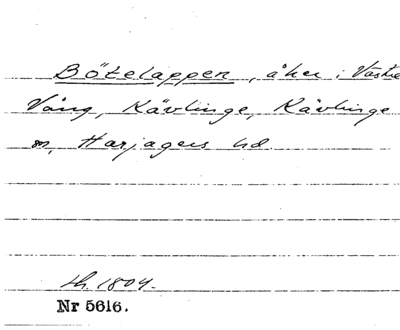 Bötelappen, åker i Västra
Vång, Kävlinge, Kävlinge
sn, Harjagers hd
lh. 1804.
Nr 5616.